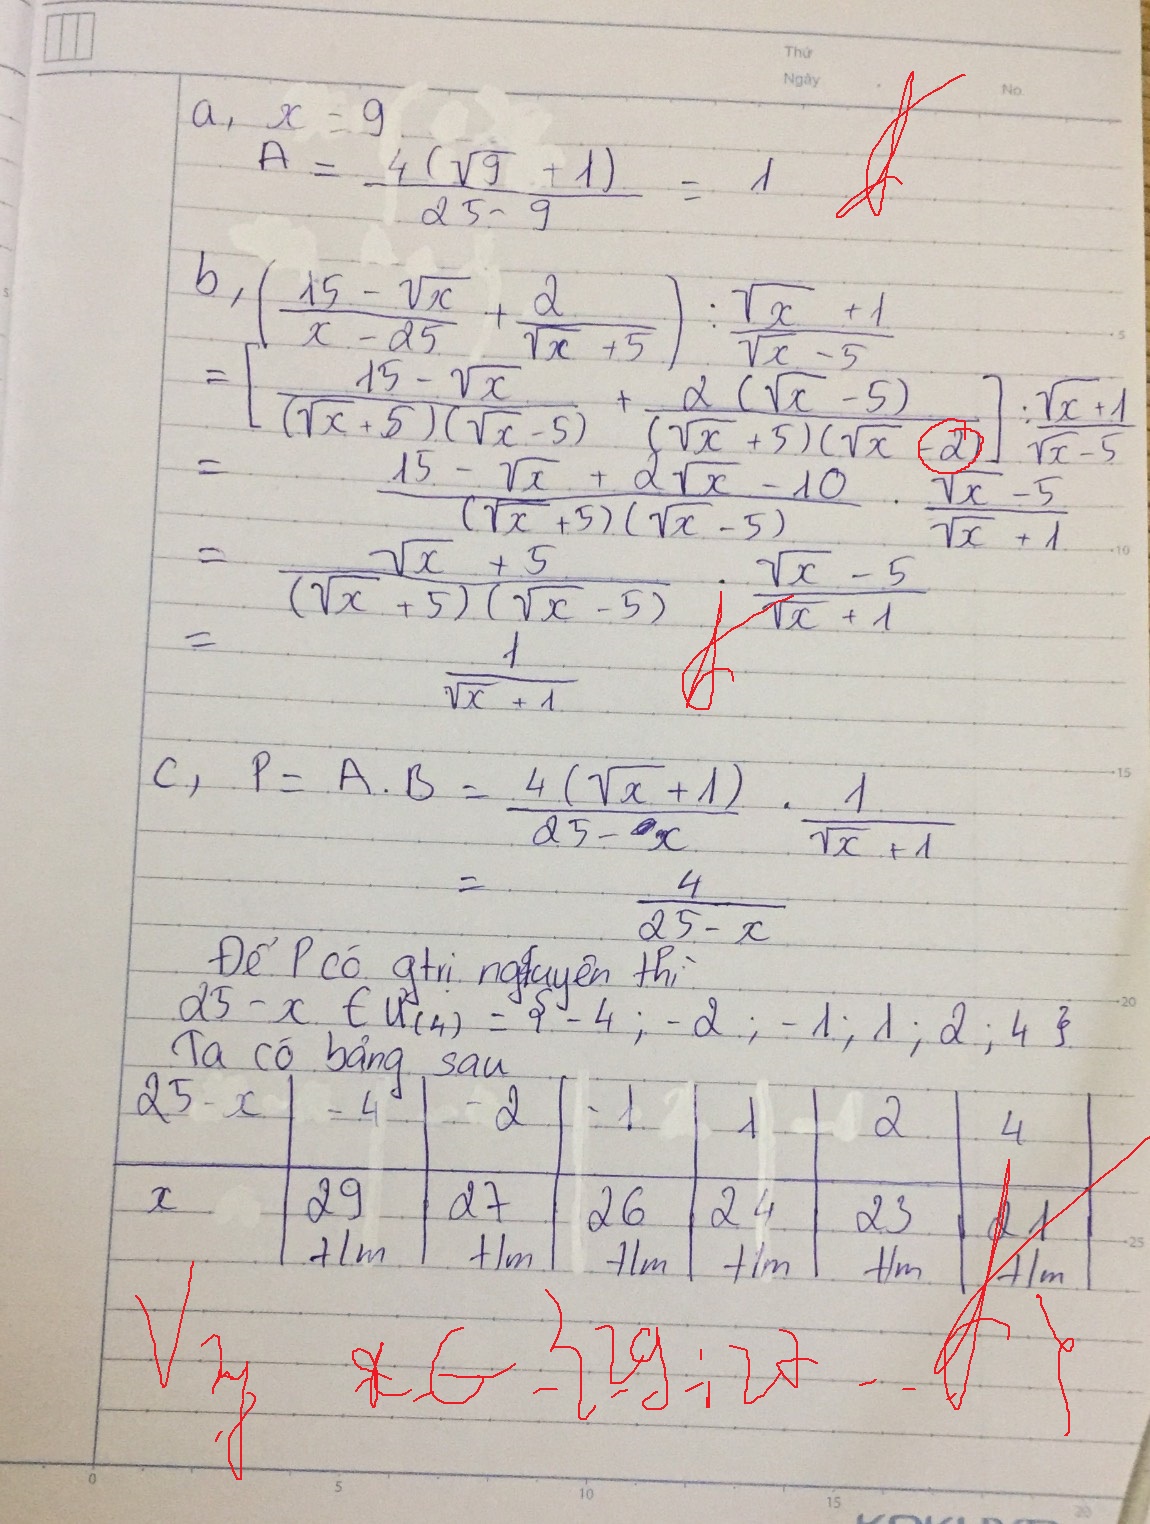 Thứ
Ngày
No.
a, x = 9
A = 4(√9 + 1) / 25 - 9 = 1
b, (15 - √x / x - 25 + 2 / √x + 5) : √x + 1 / √x - 5
= [15 - √x / (√x + 5)(√x - 5) + 2(√x - 5) / (√x + 5)(√x - 2)] : √x + 1 / √x - 5
= 15 - √x + 2√x - 10 / (√x + 5)(√x - 5) . √x - 5 / √x + 1
= √x + 5 / (√x + 5)(√x - 5) . √x - 5 / √x + 1
= 1 / √x + 1
c, P = A . B = 4(√x + 1) / 25 - x . 1 / √x + 1
= 4 / 25 - x
Để P có gtrị nguyên thì
25 - x ∈ Ư(4) = { -4 ; -2 ; -1 ; 1 ; 2 ; 4 }
Ta có bảng sau
25 - x | -4 | -2 | -1 | 1 | 2 | 4
x | 29 | 27 | 26 | 24 | 23 | 21
t/m | t/m | t/m | t/m | t/m | t/m
Vậy x ∈ {29 ; 27 ... }
5
10
15
20
25
0 5 10 15 20